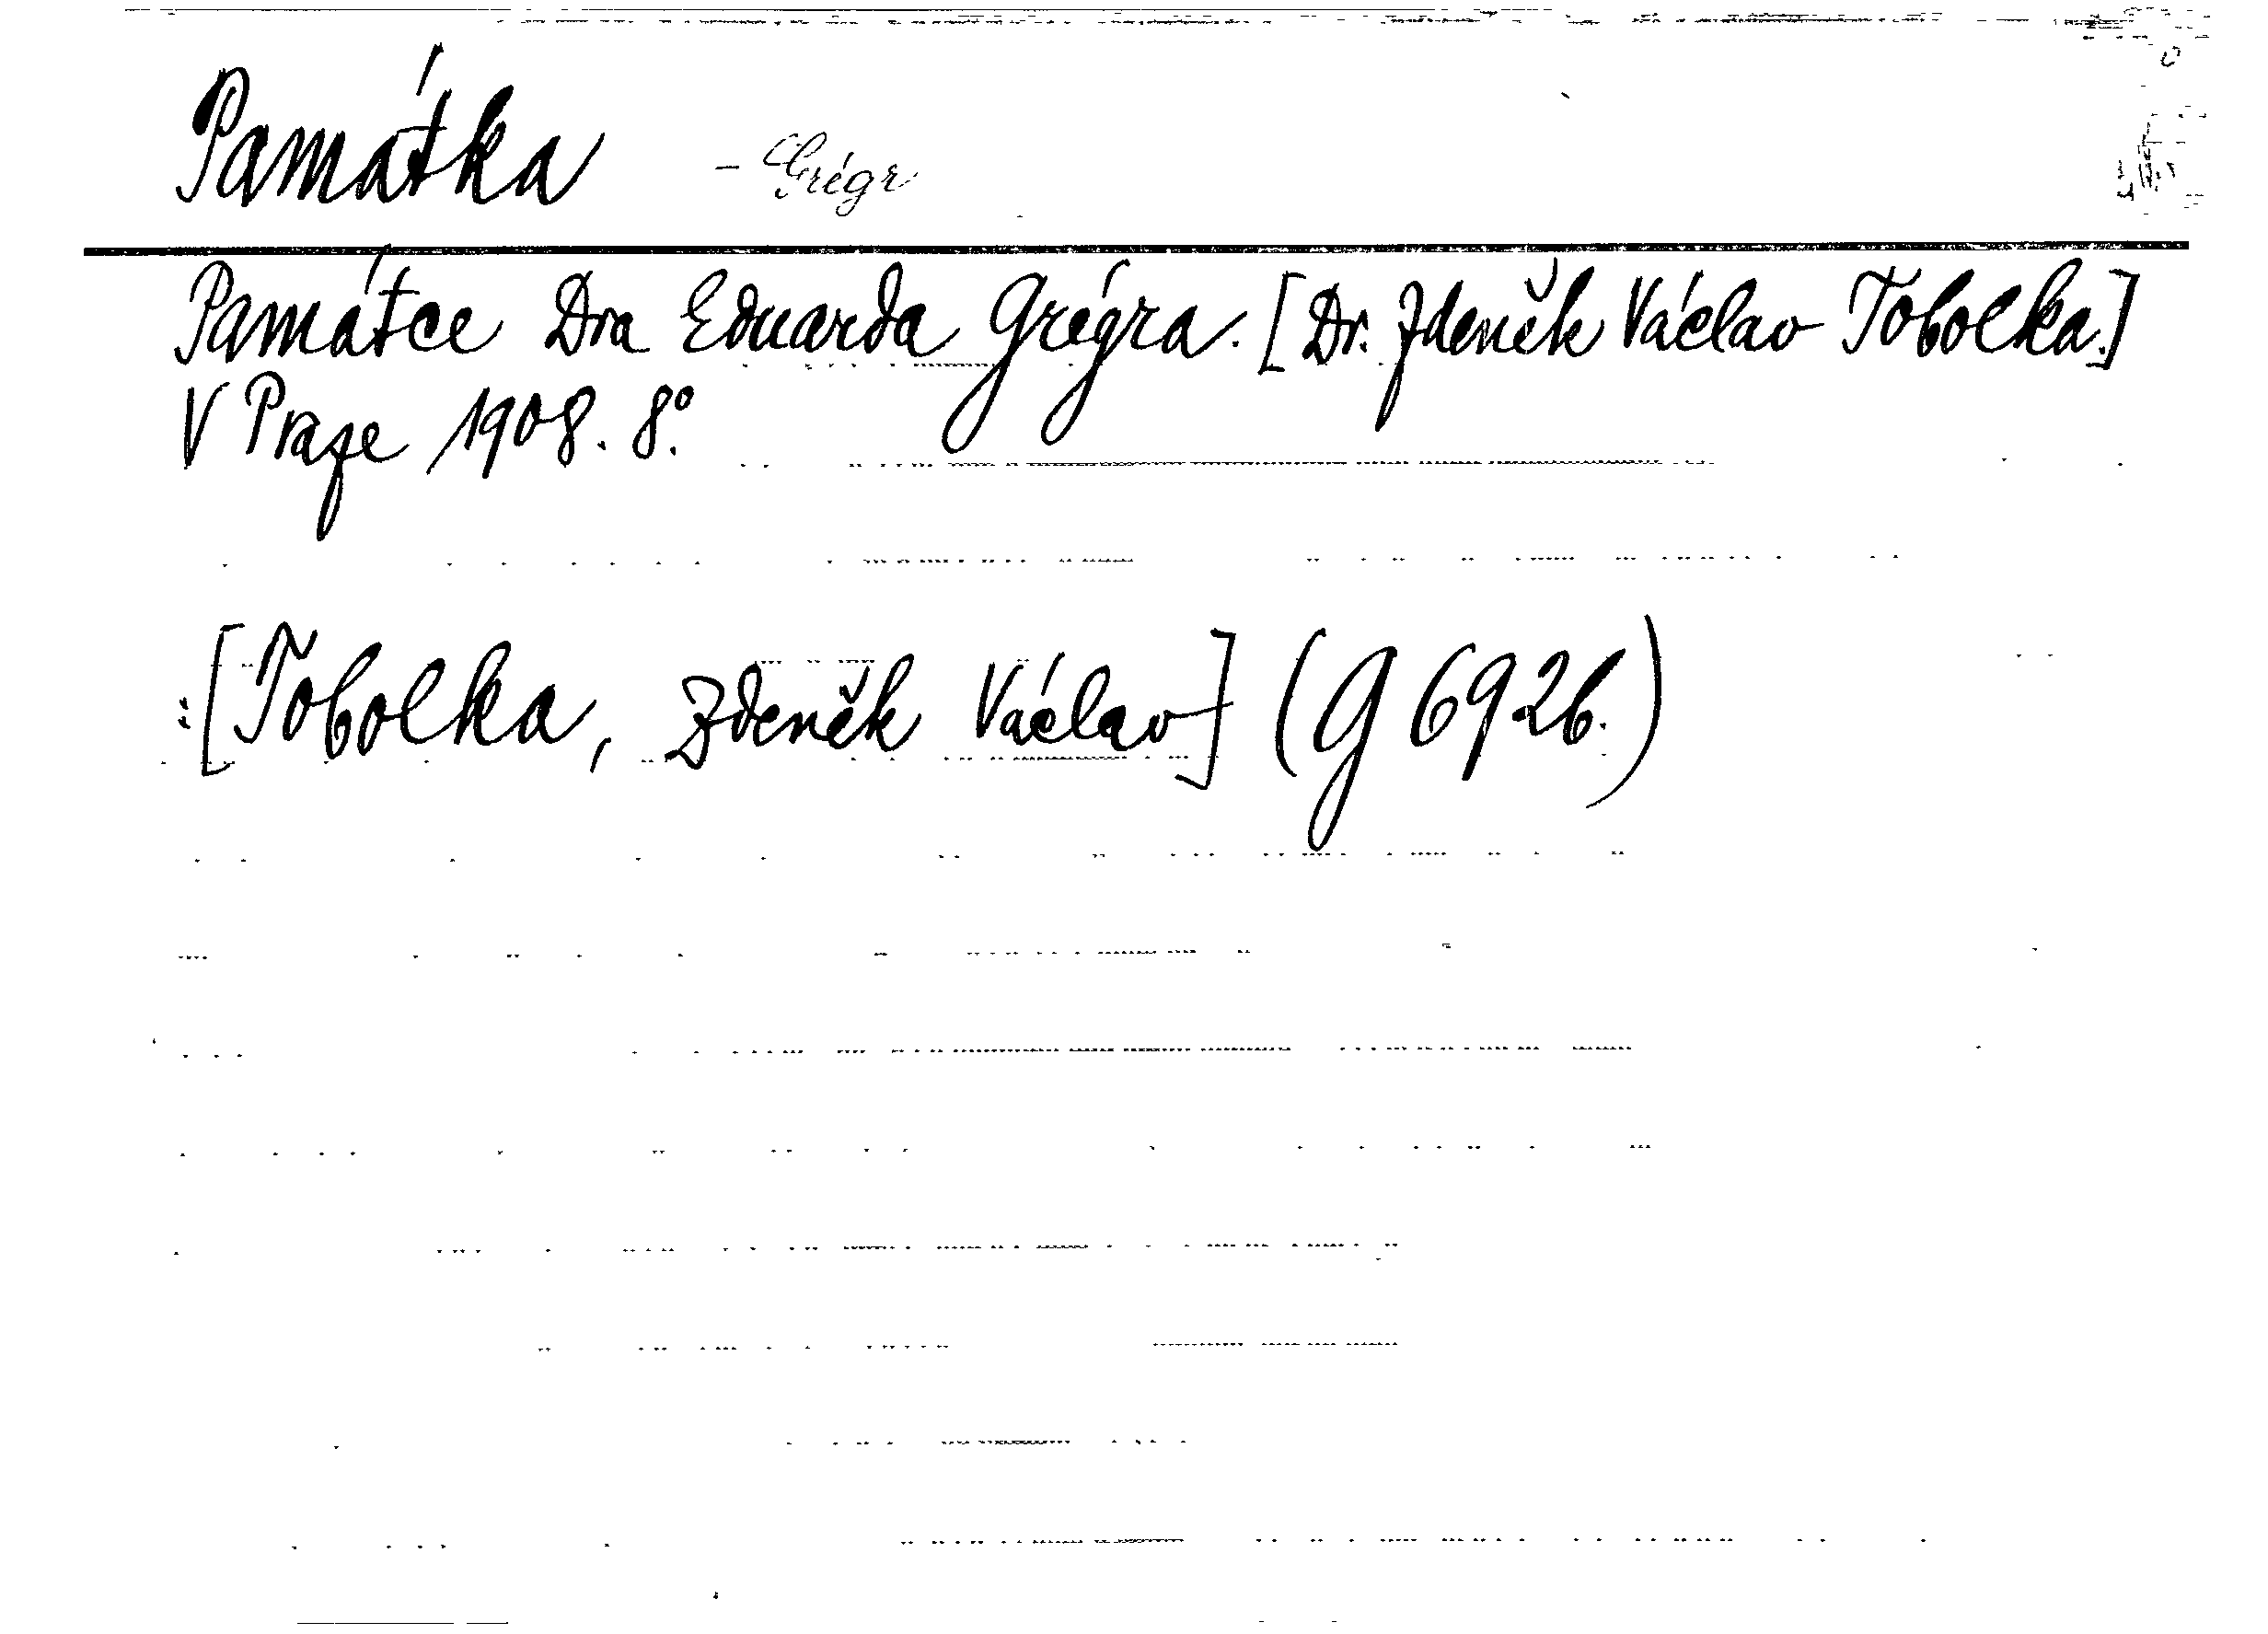 Památka - Grégr
Památce Dra Eduarda Grégra. [Dr. Zdeněk Václav Tobolka.]
V Praze 1908. 8º.
:[Tobolka, Zdeněk Václav] (G 6926.)